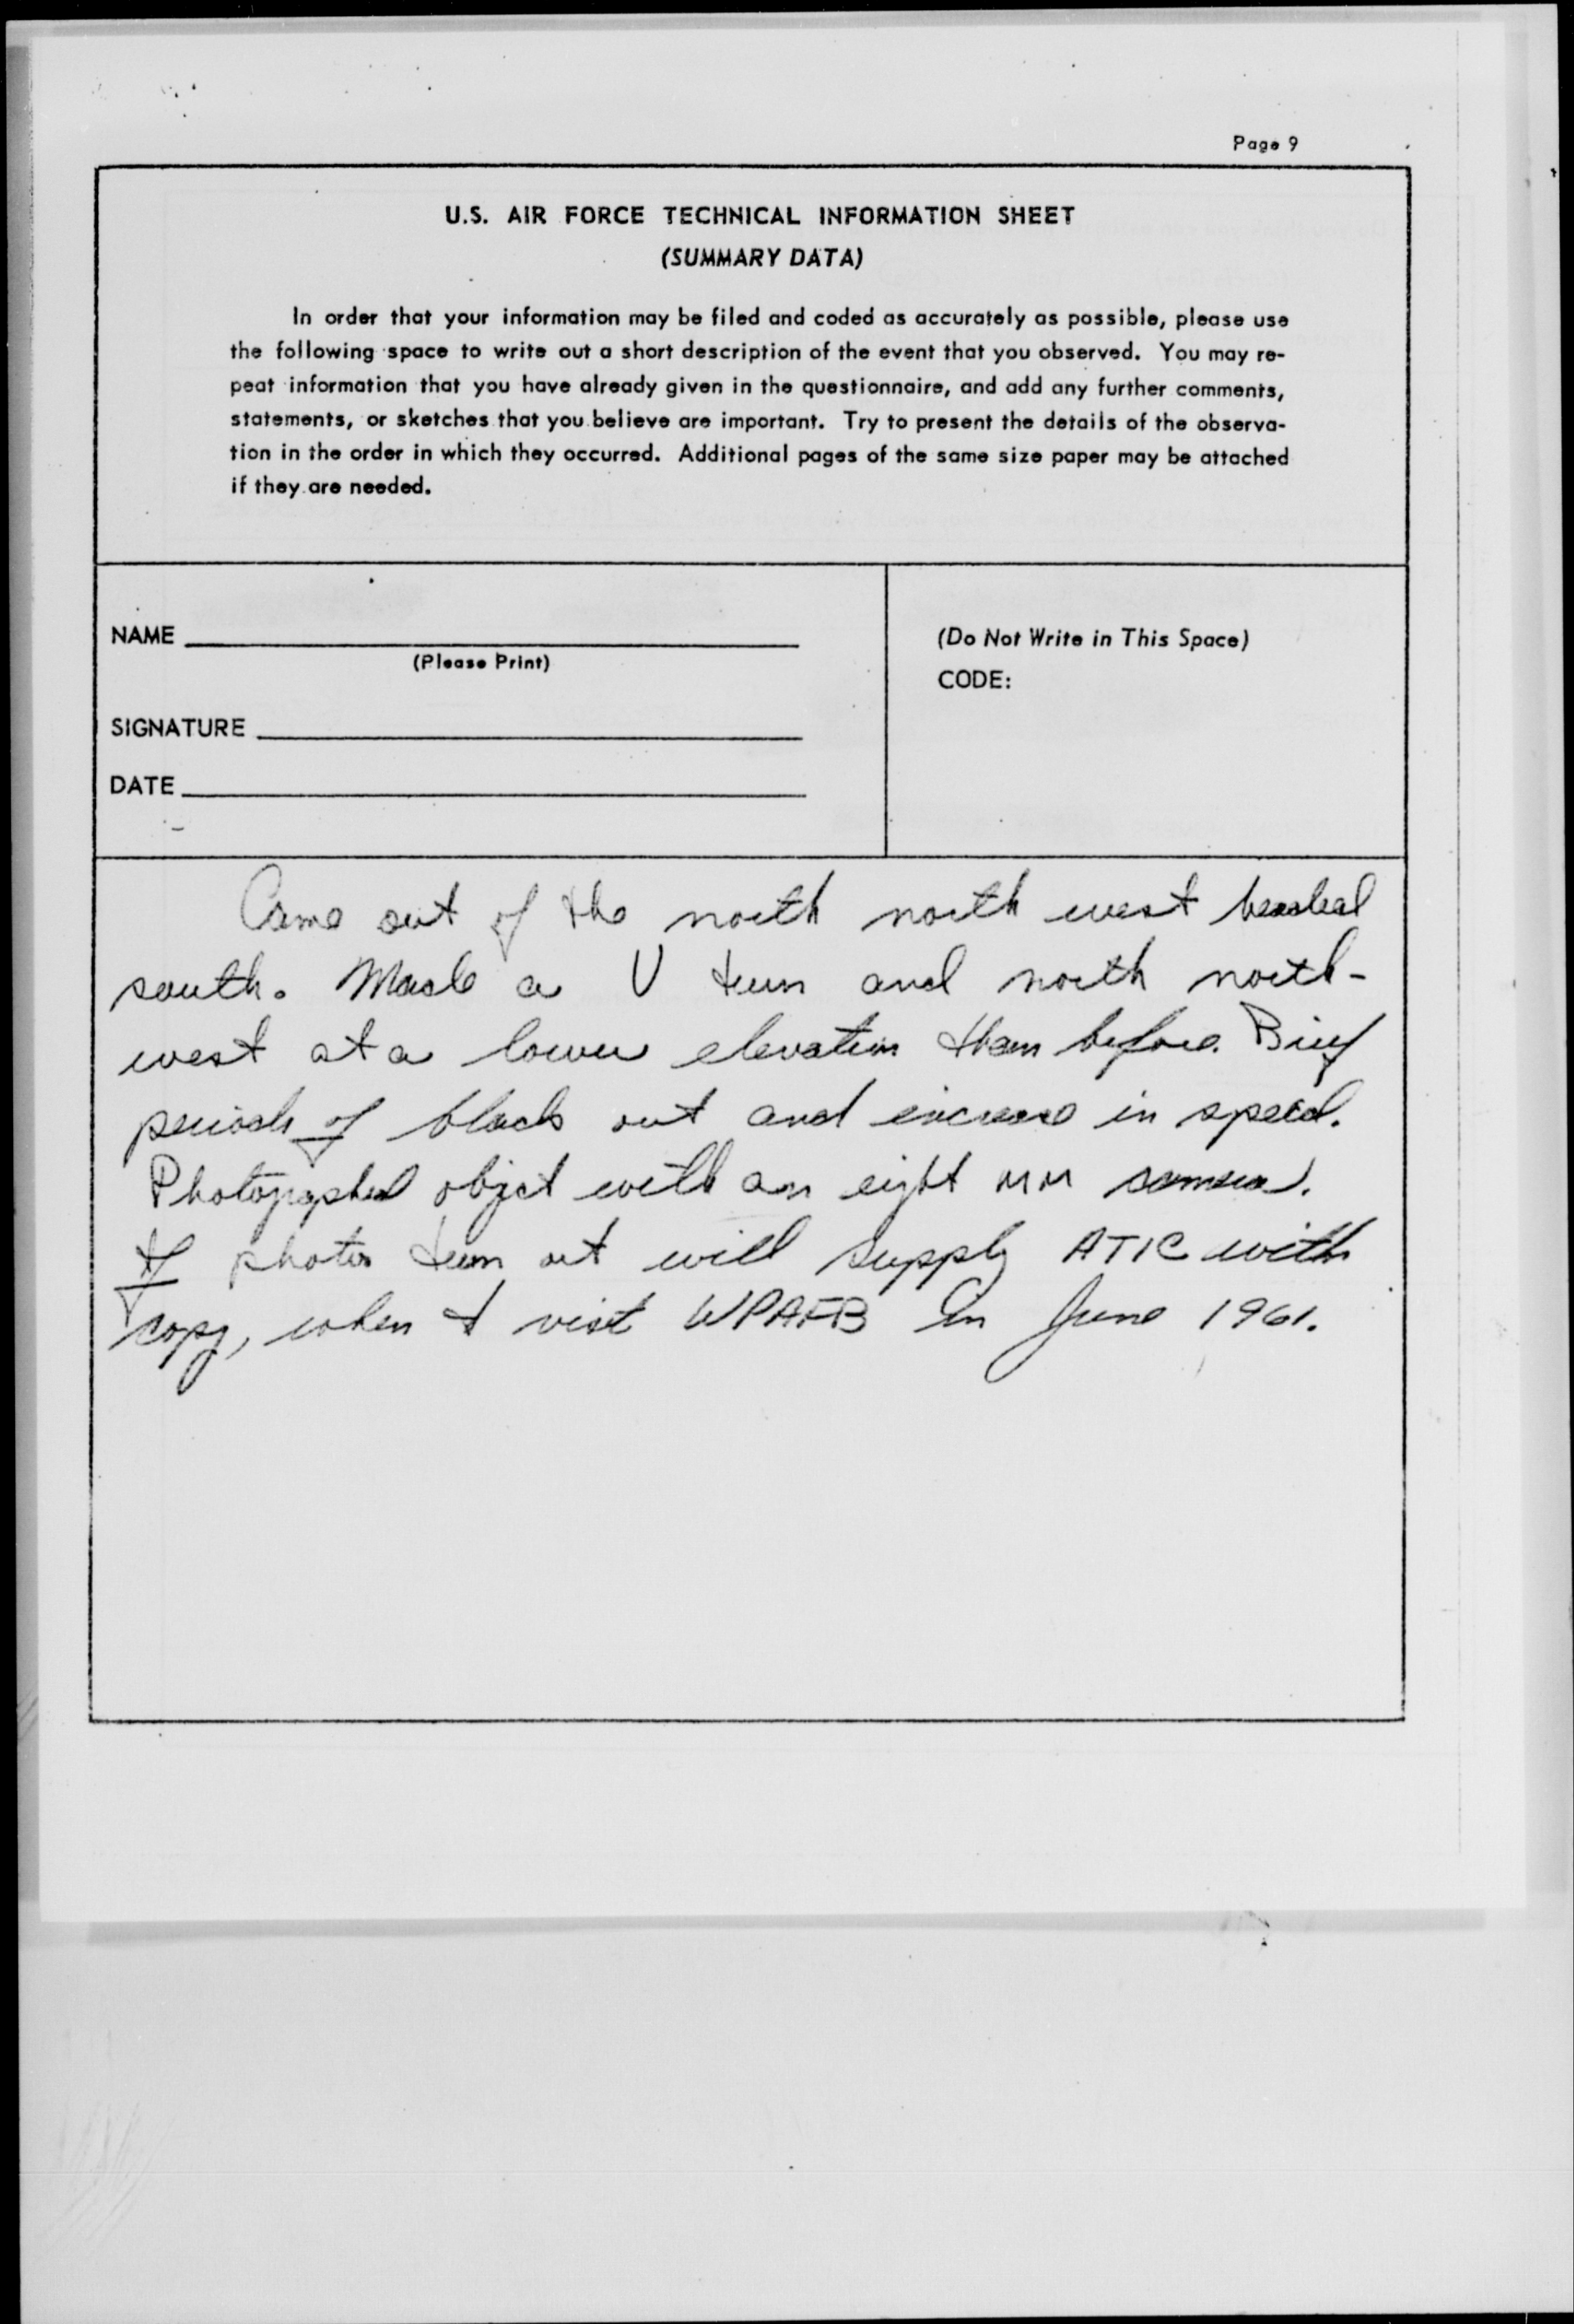 Page 9
U.S. AIR FORCE TECHNICAL INFORMATION SHEET
(SUMMARY DATA)
In order that your information may be filed and coded as accurately as possible, please use
the following space to write out a short description of the event that you observed. You may re-
peat information that you have already given in the questionnaire, and add any further comments,
statements, or sketches that you believe are important. Try to present the details of the observa-
tion in the order in which they occurred. Additional pages of the same size paper may be attached
if they are needed.
NAME
(Please Print)
SIGNATURE
DATE
(Do Not Write in This Space)
CODE:
Came out of the north north west headed
south. Made a U turn and north north-
west at a lower elevation than before. Brief
periods of black out and increase in speed.
Photographed object with an eight MM camera.
If photos turn out will supply ATIC with
copy, when I visit WPAFB in June 1961.